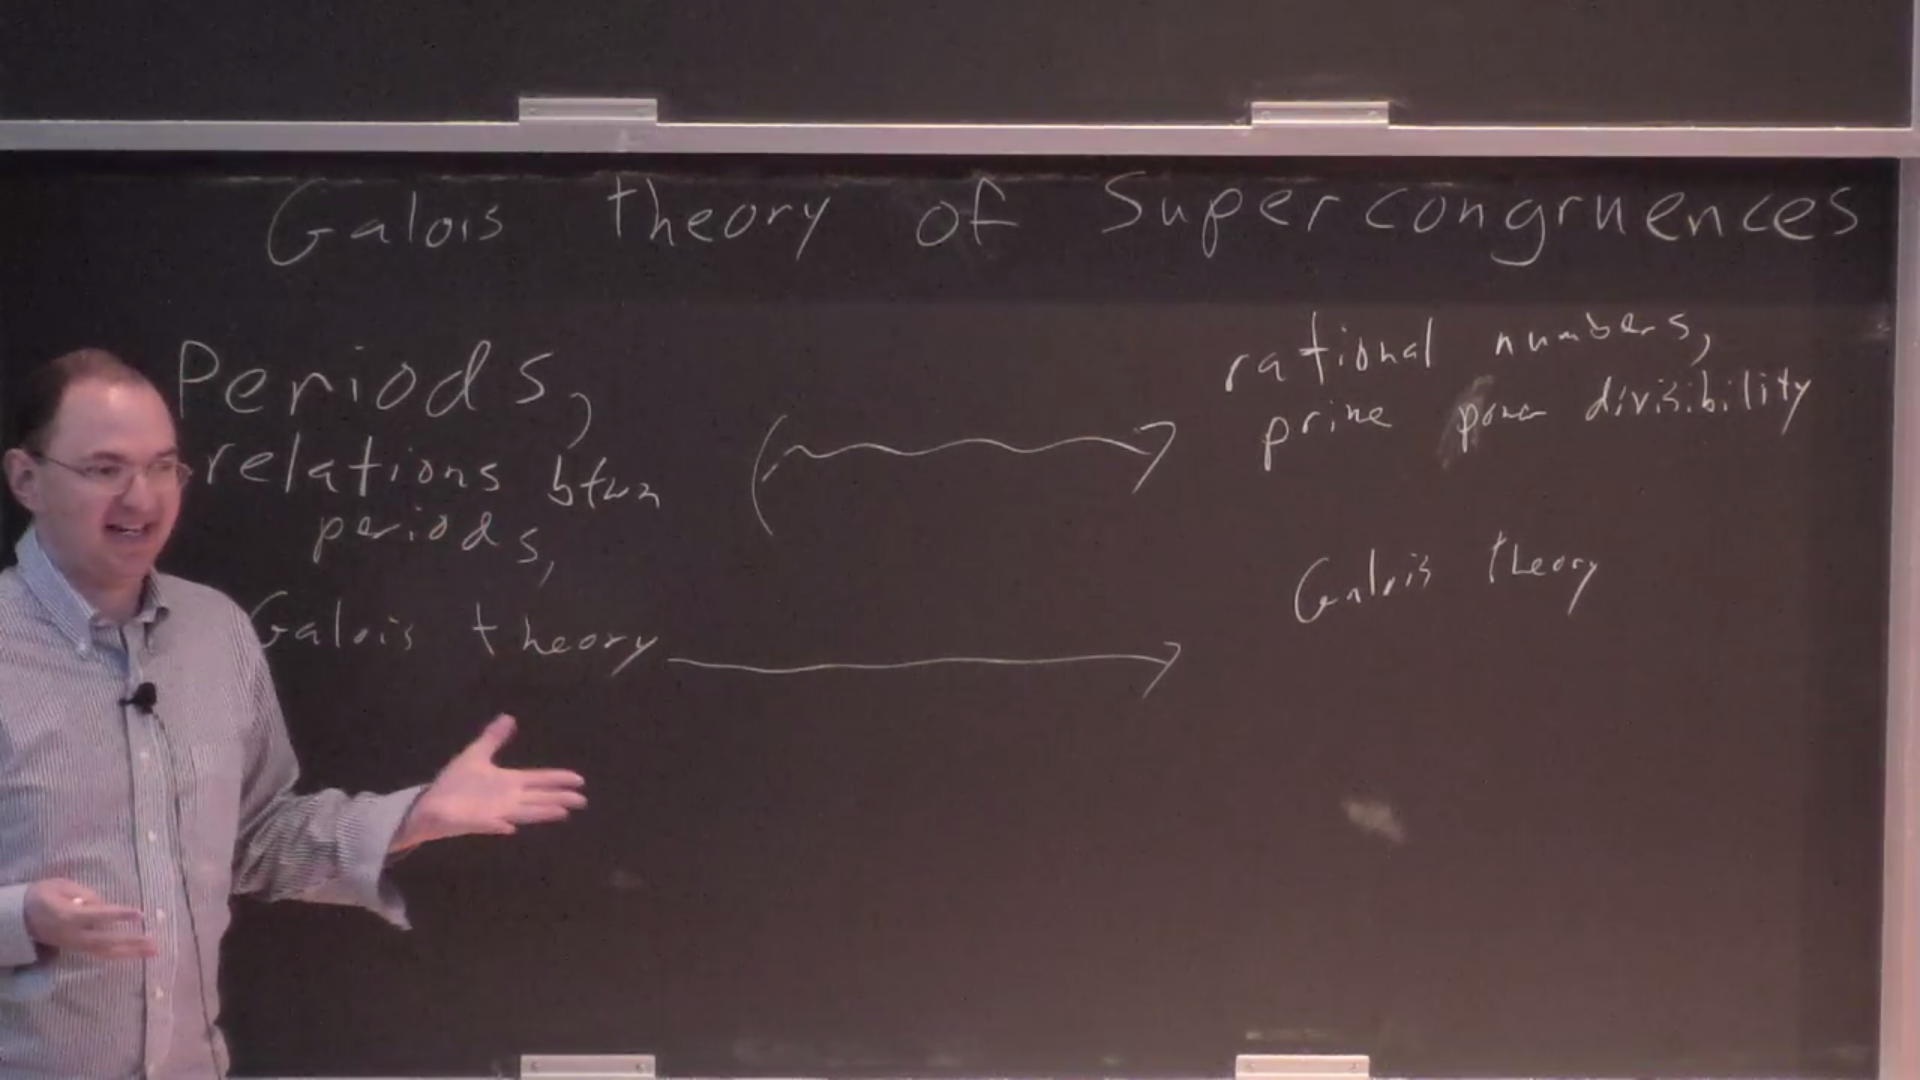 Galois theory of Supercongruences
Periods,
relations btwn
periods,
Galois theory
rational numbers,
prime power divisibility
Galois theory